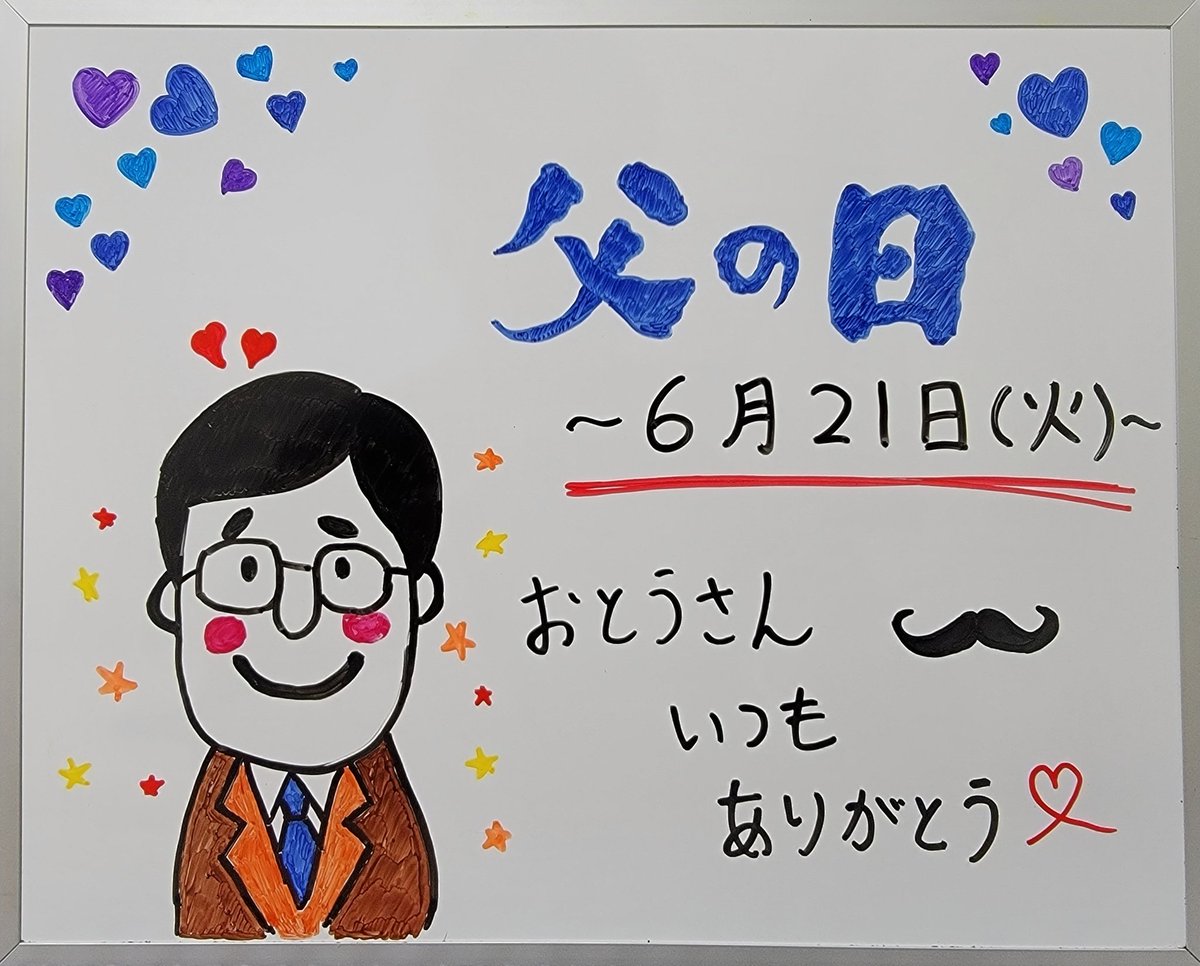 父の日
～6月21日(火)～
おとうさん
いつも
ありがとう